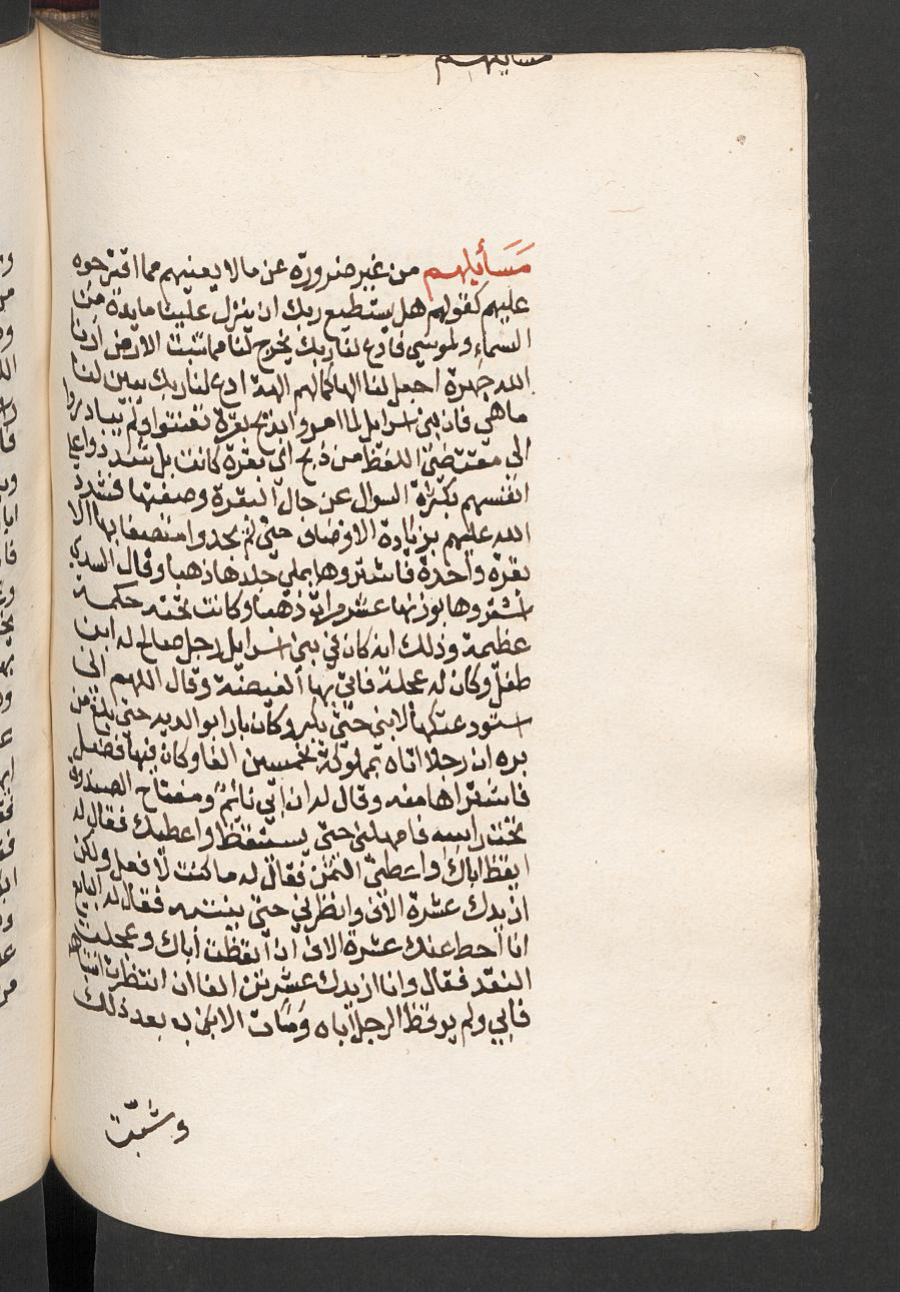 مسايلهم
مَسَأيلهم من غير ضرورة عن مالا يعنيهم مما اقترحوه
عليهم كقولهم هل يستطيع ربك ان ينزل علينا مايدة من
السماء ولموسي فادع لنا ربك يخرج لنا مما تنبت الارض ارنا
الله جهرة اجعل لنا الها كما لهم الهة ادع لنا ربك يبين لنا
ما هي فان بني اسرايل لما امروا بذبح بقرة تعنتوا ولم يبادروا
الي مقتضي اللفظ من ذبح اي بقرة كانت بل شددوا علي
انفسهم بكثرة السوال عن حال البقرة وصفتها فشدد
الله عليهم بزيادة الاوصاف حتي لم يجدوا متصفا بها الا
بقرة واحدة فاشتروها بملي جلدها ذهبا وقال السدي
اشتروها بوزنها عشر مرات ذهبا وكانت تحته حكمة
عظيمة وذلك انه كان في بني اسرايل رجل صالح له ابن
طفل وكان له عجلة فاتي بها الغيضة وقال اللهم اني
استودعتكها لابني حتي يكبر وكان بارا بوالديه حتي بلغ من
بره ان رجلا اتاه بمملوكة بخمسين الفا وكان فيها فضل
فاشتراها منه وقال له ان ابي نائم ومفتاح الصندوق
تحت راسه فامهلني حتي يستيقظ واعطيك فقال له
ايقظ اباك واعطني الثمن فقال له ما كنت لافعل ولكن
ازيدك عشرة الاف وانظرني حتي ينتبه فقال له البايع
انا احط عنك عشرة الاف ان ايقظت أباك وعجلت
النقد فقال وانا ازيدك عشرين الفا ان انتظرت انتباهه
فابي ولم يوقظ الرجل اباه وَمَات الاب به بعد ذلك
وشبّت